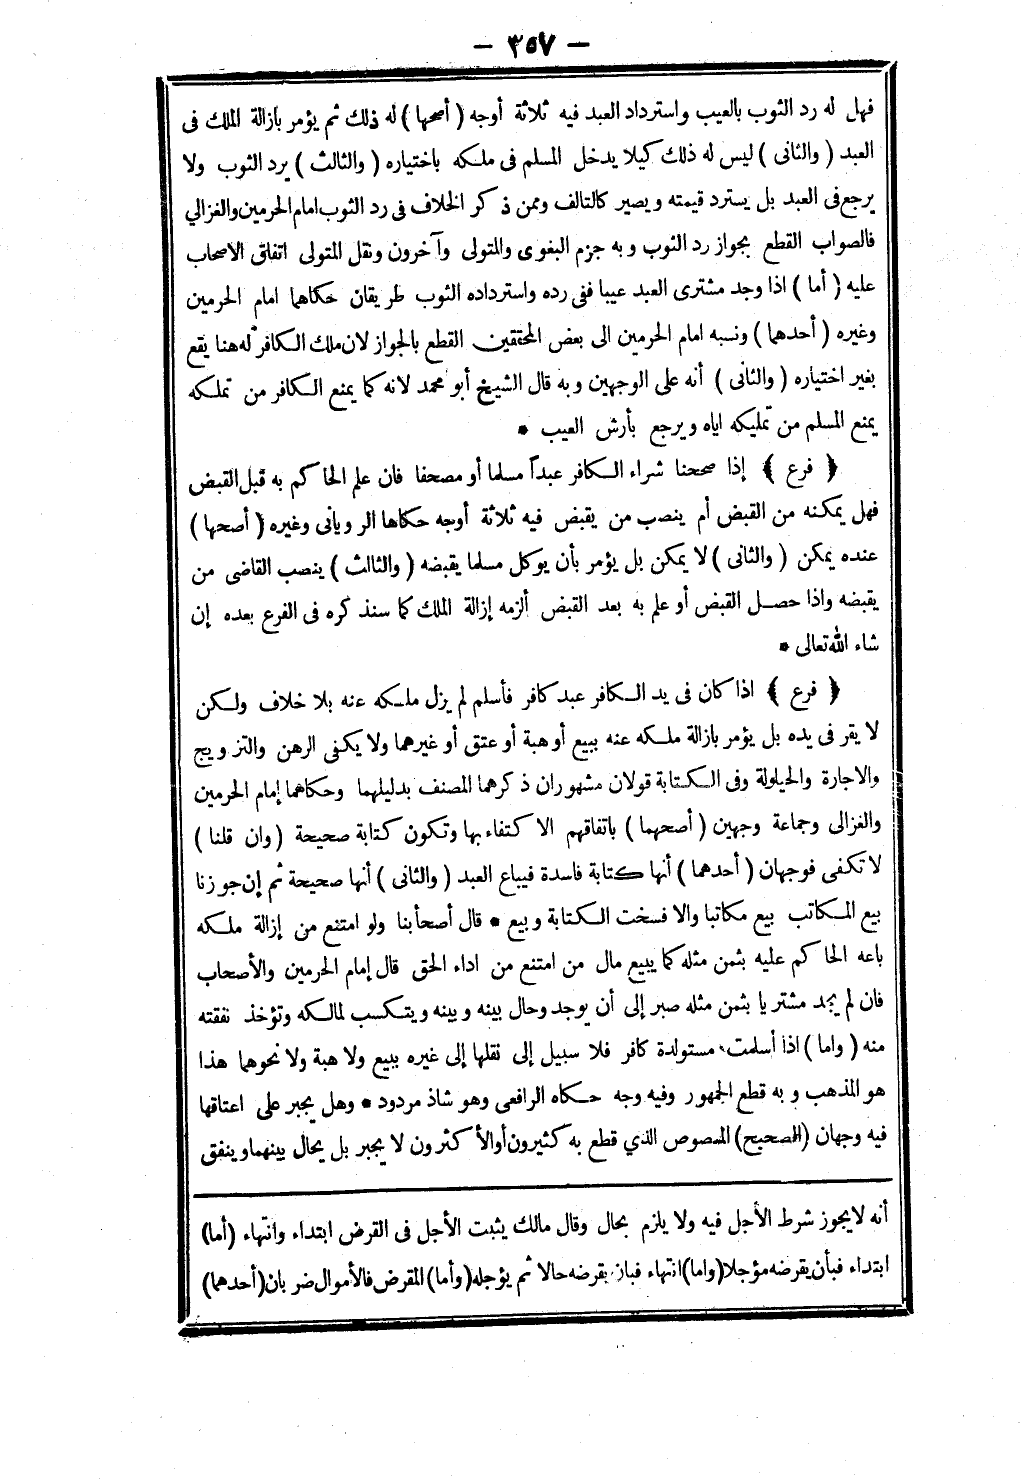 — ٣٥٧ —
فهل له رد الثوب بالعيب واسترداد العبد فيه ثلاثة أوجه ( أصحها ) له ذلك ثم يؤمر بازالة الملك فى
العبد ( والثانى ) ليس له ذلك كيلا يدخل المسلم فى ملكه باختياره ( والثالث ) يرد الثوب ولا
يرجع فى العبد بل يسترد قيمته ويصير كالتالف وممن ذكر الخلاف فى رد الثوب امام الحرمين والغزالي
فالصواب القطع بجواز رد الثوب وبه جزم البغوى والمتولى وآخرون ونقل المتولى اتفاق الاصحاب
عليه ( أما ) اذا وجد مشترى العبد عيبا ففى رده واسترداده الثوب طريقان حكاهما امام الحرمين
وغيره ( أحدهما ) ونسبه امام الحرمين الى بعض المحققين القطع بالجواز لان ملك الكافر له هنا يقع
بغير اختياره ( والثانى ) أنه على الوجهين وبه قال الشيخ أبو محمد لانه كما يمنع الكافر من تملكه
يمنع المسلم من تمليكه اياه ويرجع بأرش العيب *
﴿ فرع ﴾ إذا صححنا شراء الكافر عبداً مسلما أو مصحفا فان علم الحاكم به قبل القبض
فهل يمكنه من القبض أم ينصب من يقبض فيه ثلاثة أوجه حكاها الرويانى وغيره ( أصحها )
عنده يمكن ( والثانى ) لا يمكن بل يؤمر بأن يوكل مسلما يقبضه ( والثالث ) ينصب القاضى من
يقبضه واذا حصل القبض أو علم به بعد القبض ألزمه إزالة الملك كما سنذكره فى الفرع بعده إن
شاء الله تعالى *
﴿ فرع ﴾ اذا كان فى يد الكافر عبد كافر فأسلم لم يزل ملكه عنه بلا خلاف ولكن
لا يقر فى يده بل يؤمر بازالة ملكه عنه ببيع أو هبة أو عتق أو غيرهما ولا يكفى الرهن والتزويج
والاجارة والحيلولة وفى الكتابة قولان مشهوران ذكرهما المصنف بدليلهما وحكاهما إمام الحرمين
والغزالى وجماعة وجهين ( أصحهما ) باتفاقهم الاكتفاء بها وتكون كتابة صحيحة ( وان قلنا )
لا تكفى فوجهان ( أحدهما ) أنها كتابة فاسدة فيباع العبد ( والثانى ) أنها صحيحة ثم إن جوزنا
بيع المكاتب بيع مكاتبا والا فسخت الكتابة وبيع * قال أصحابنا ولو امتنع من إزالة ملكه
باعه الحاكم عليه بثمن مثله كما يبيع مال من امتنع من اداء الحق قال إمام الحرمين والأصحاب
فان لم يجد مشتريا بثمن مثله صبر إلى أن يوجد وحال بينه وبينه ويتكسب لمالكه وتؤخذ نفقته
منه ( واما ) اذا أسلمت مستولدة كافر فلا سبيل إلى نقلها إلى غيره ببيع ولا هبة ولا نحوهما هذا
هو المذهب وبه قطع الجمهور وفيه وجه حكاه الرافعى وهو شاذ مردود * وهل يجبر على اعتاقها
فيه وجهان (الصحيح) المنصوص الذي قطع به كثيرون أو الأكثرون لا يجبر بل يحال بينهما وينفق
أنه لا يجوز شرط الأجل فيه ولا يلزم بحال وقال مالك يثبت الأجل فى القرض ابتداء وانتهاء (أما)
ابتداء فبأن يقرضه مؤجلا (واما) انتهاء فبان يقرضه حالا ثم يؤجله (وأما) المقرض فالأموال ضربان (أحدهما)